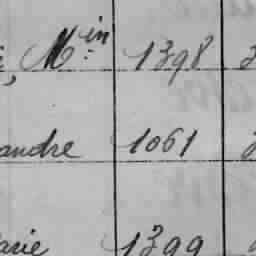 , Min 1398
andre 1061
arie 1399